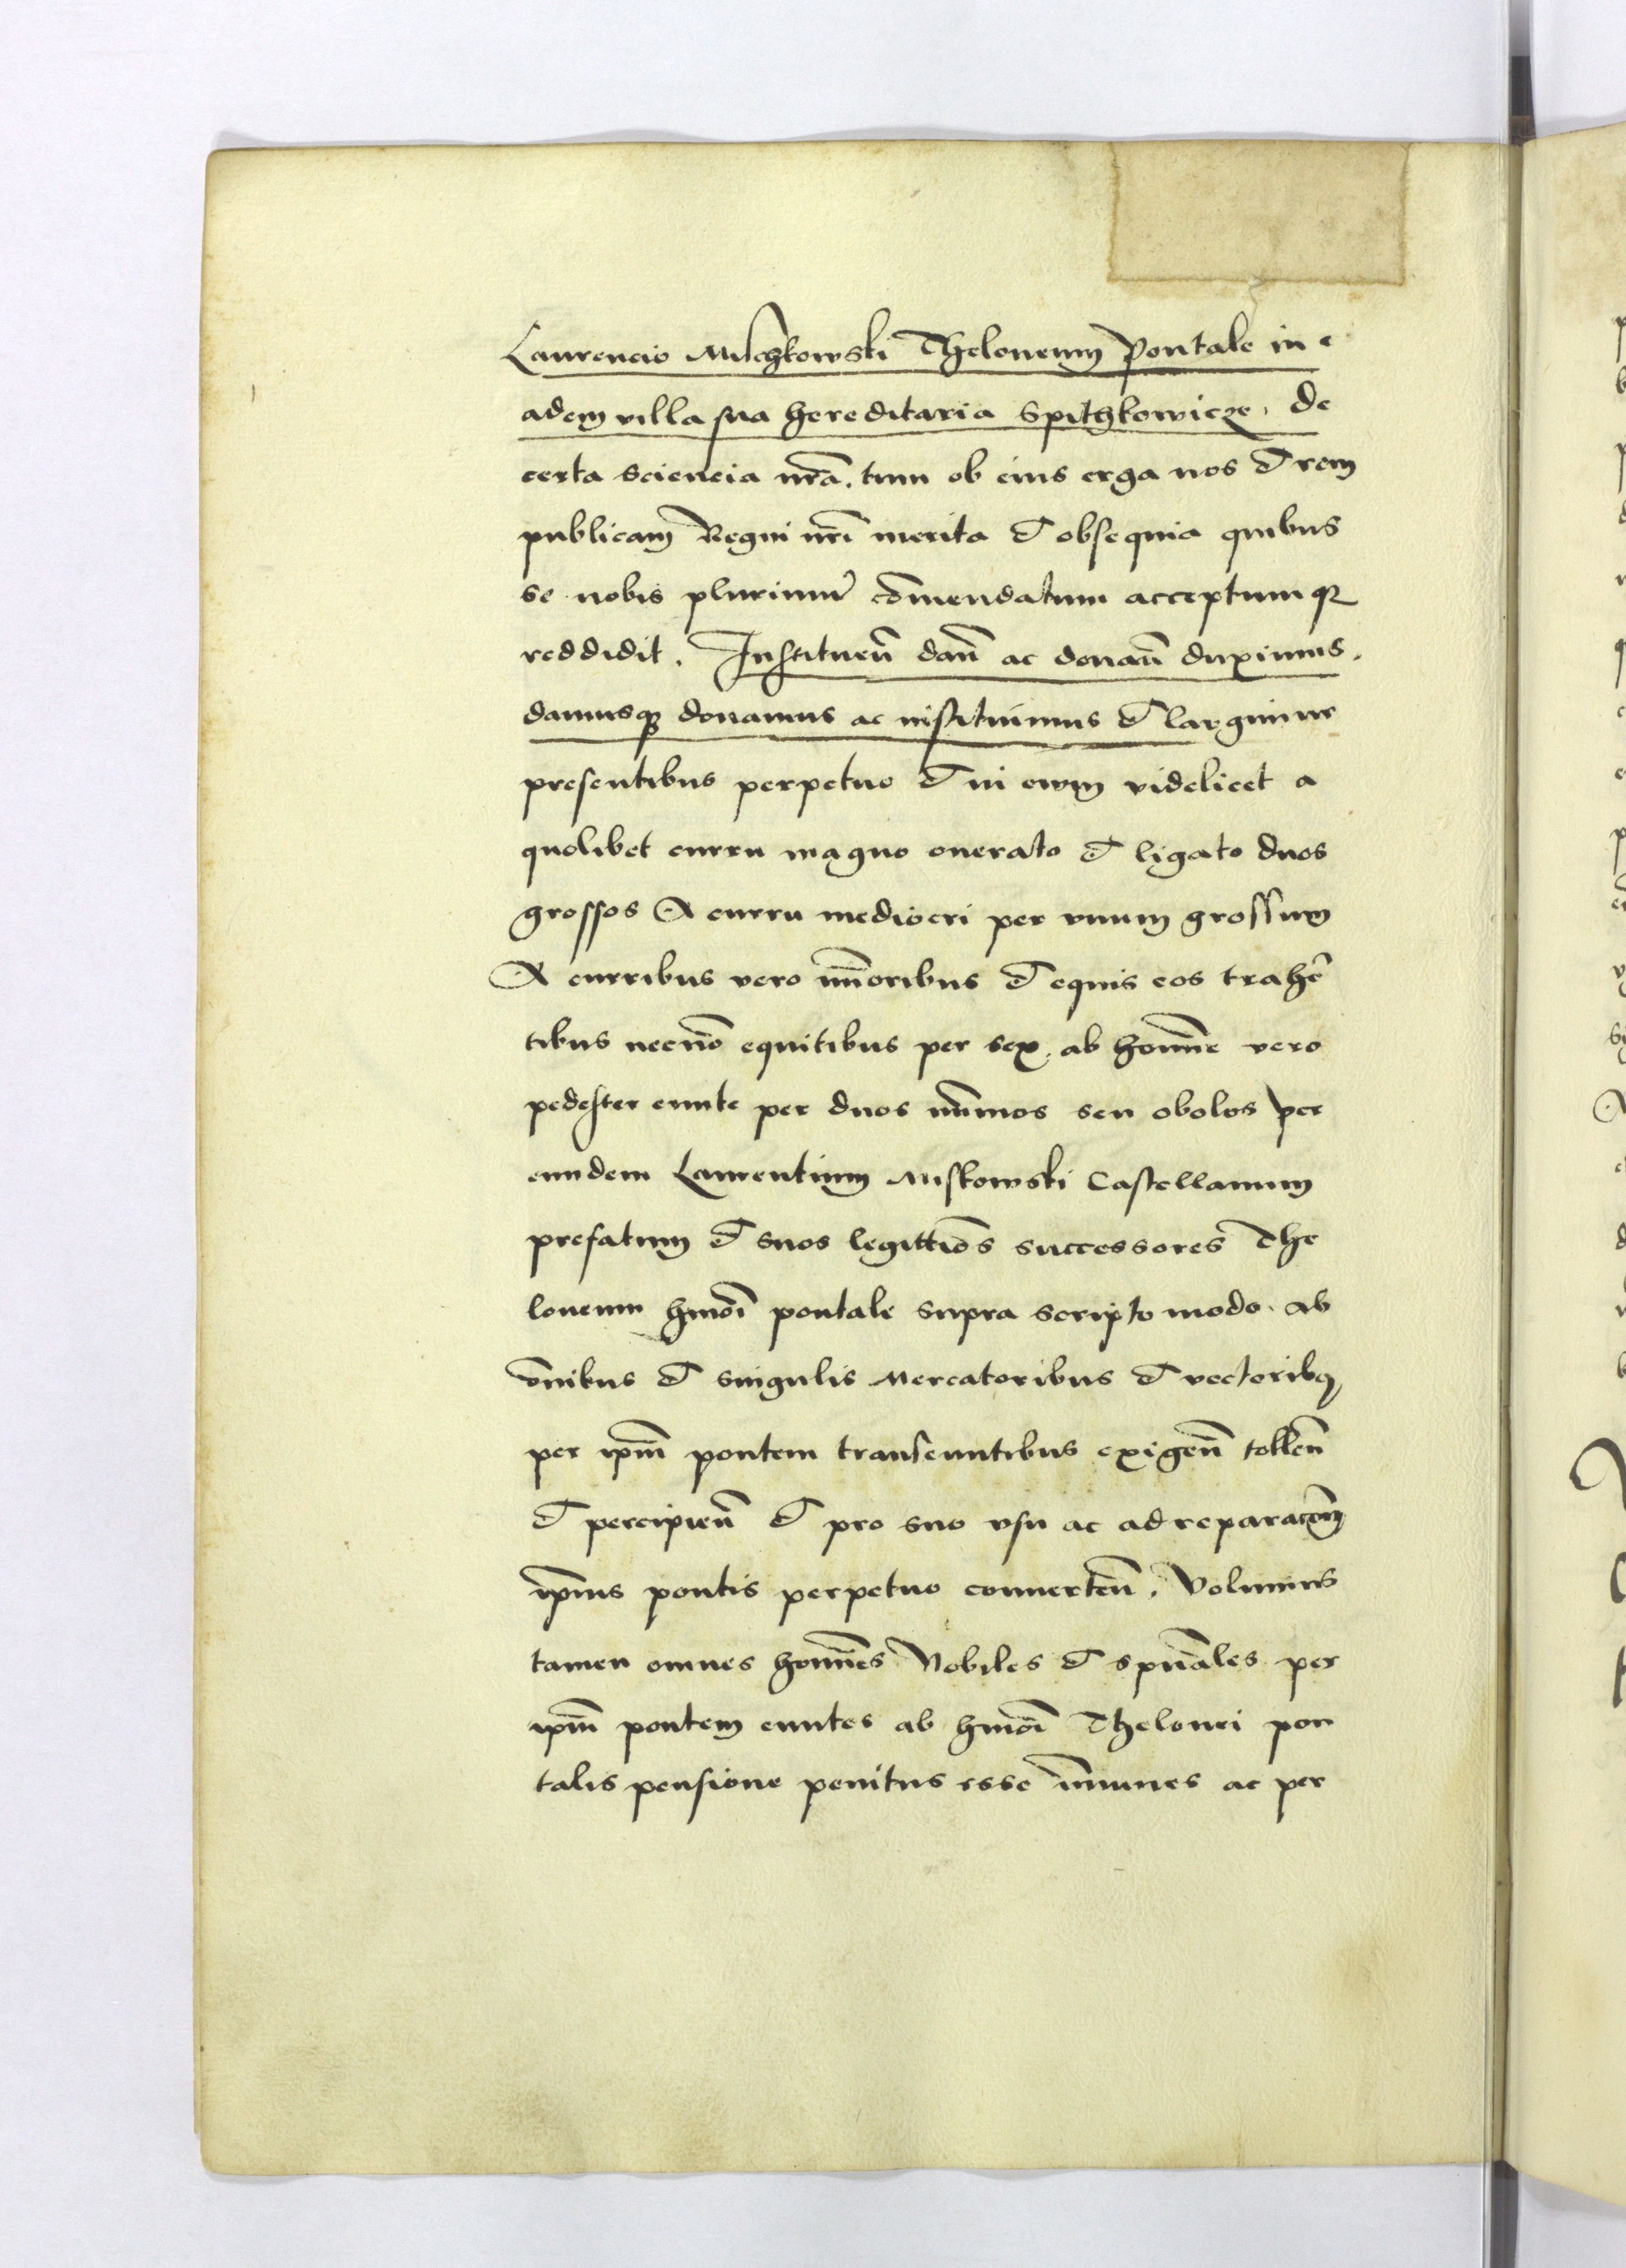 Laurencio Mischkowski Theloneum Pontale in e
adem villa sua hereditaria Spithkowicze, de
certa sciencia nrā. tum ob eius erga nos et rem
publicam Regni nrī merita et obsequia quibus
se nobis plurimū cōmendatum acceptumqꝫ
reddidit. Instituen̄ dan̄ ac donan̄ duximus.
damusqꝫ donamus ac instituimus et largimur
presentibus perpetuo et in ewm videlicet a
quolibet curru magno onerato et ligato duos
grossos A curru mediocri per vnum grossum
A curribus vero mīoribus et equis eos trahē
tibus necnō equitibus per sex, ab homīe vero
pedester eunte per duos nūmos seu obolos per
eundem Laurentium Miskowski Castellanum
prefatum et suos legittiōs successores The
loneum hmōi pontale supra scripto modo. ab
ōnibus et singulis Mercatoribus et vectoribꝫ
per ipm̄ pontem transeuntibus exigen̄ tollen̄
et percipien̄ et pro suo vsu ac ad reparacōem
ipīus pontis perpetuo conuerten̄. Volumus
tamen omnes homīes Nobiles et spūales per
ipm̄ pontem euntes ab hmōi Thelonei pon
talis pensione penitus esse īmunes ac per